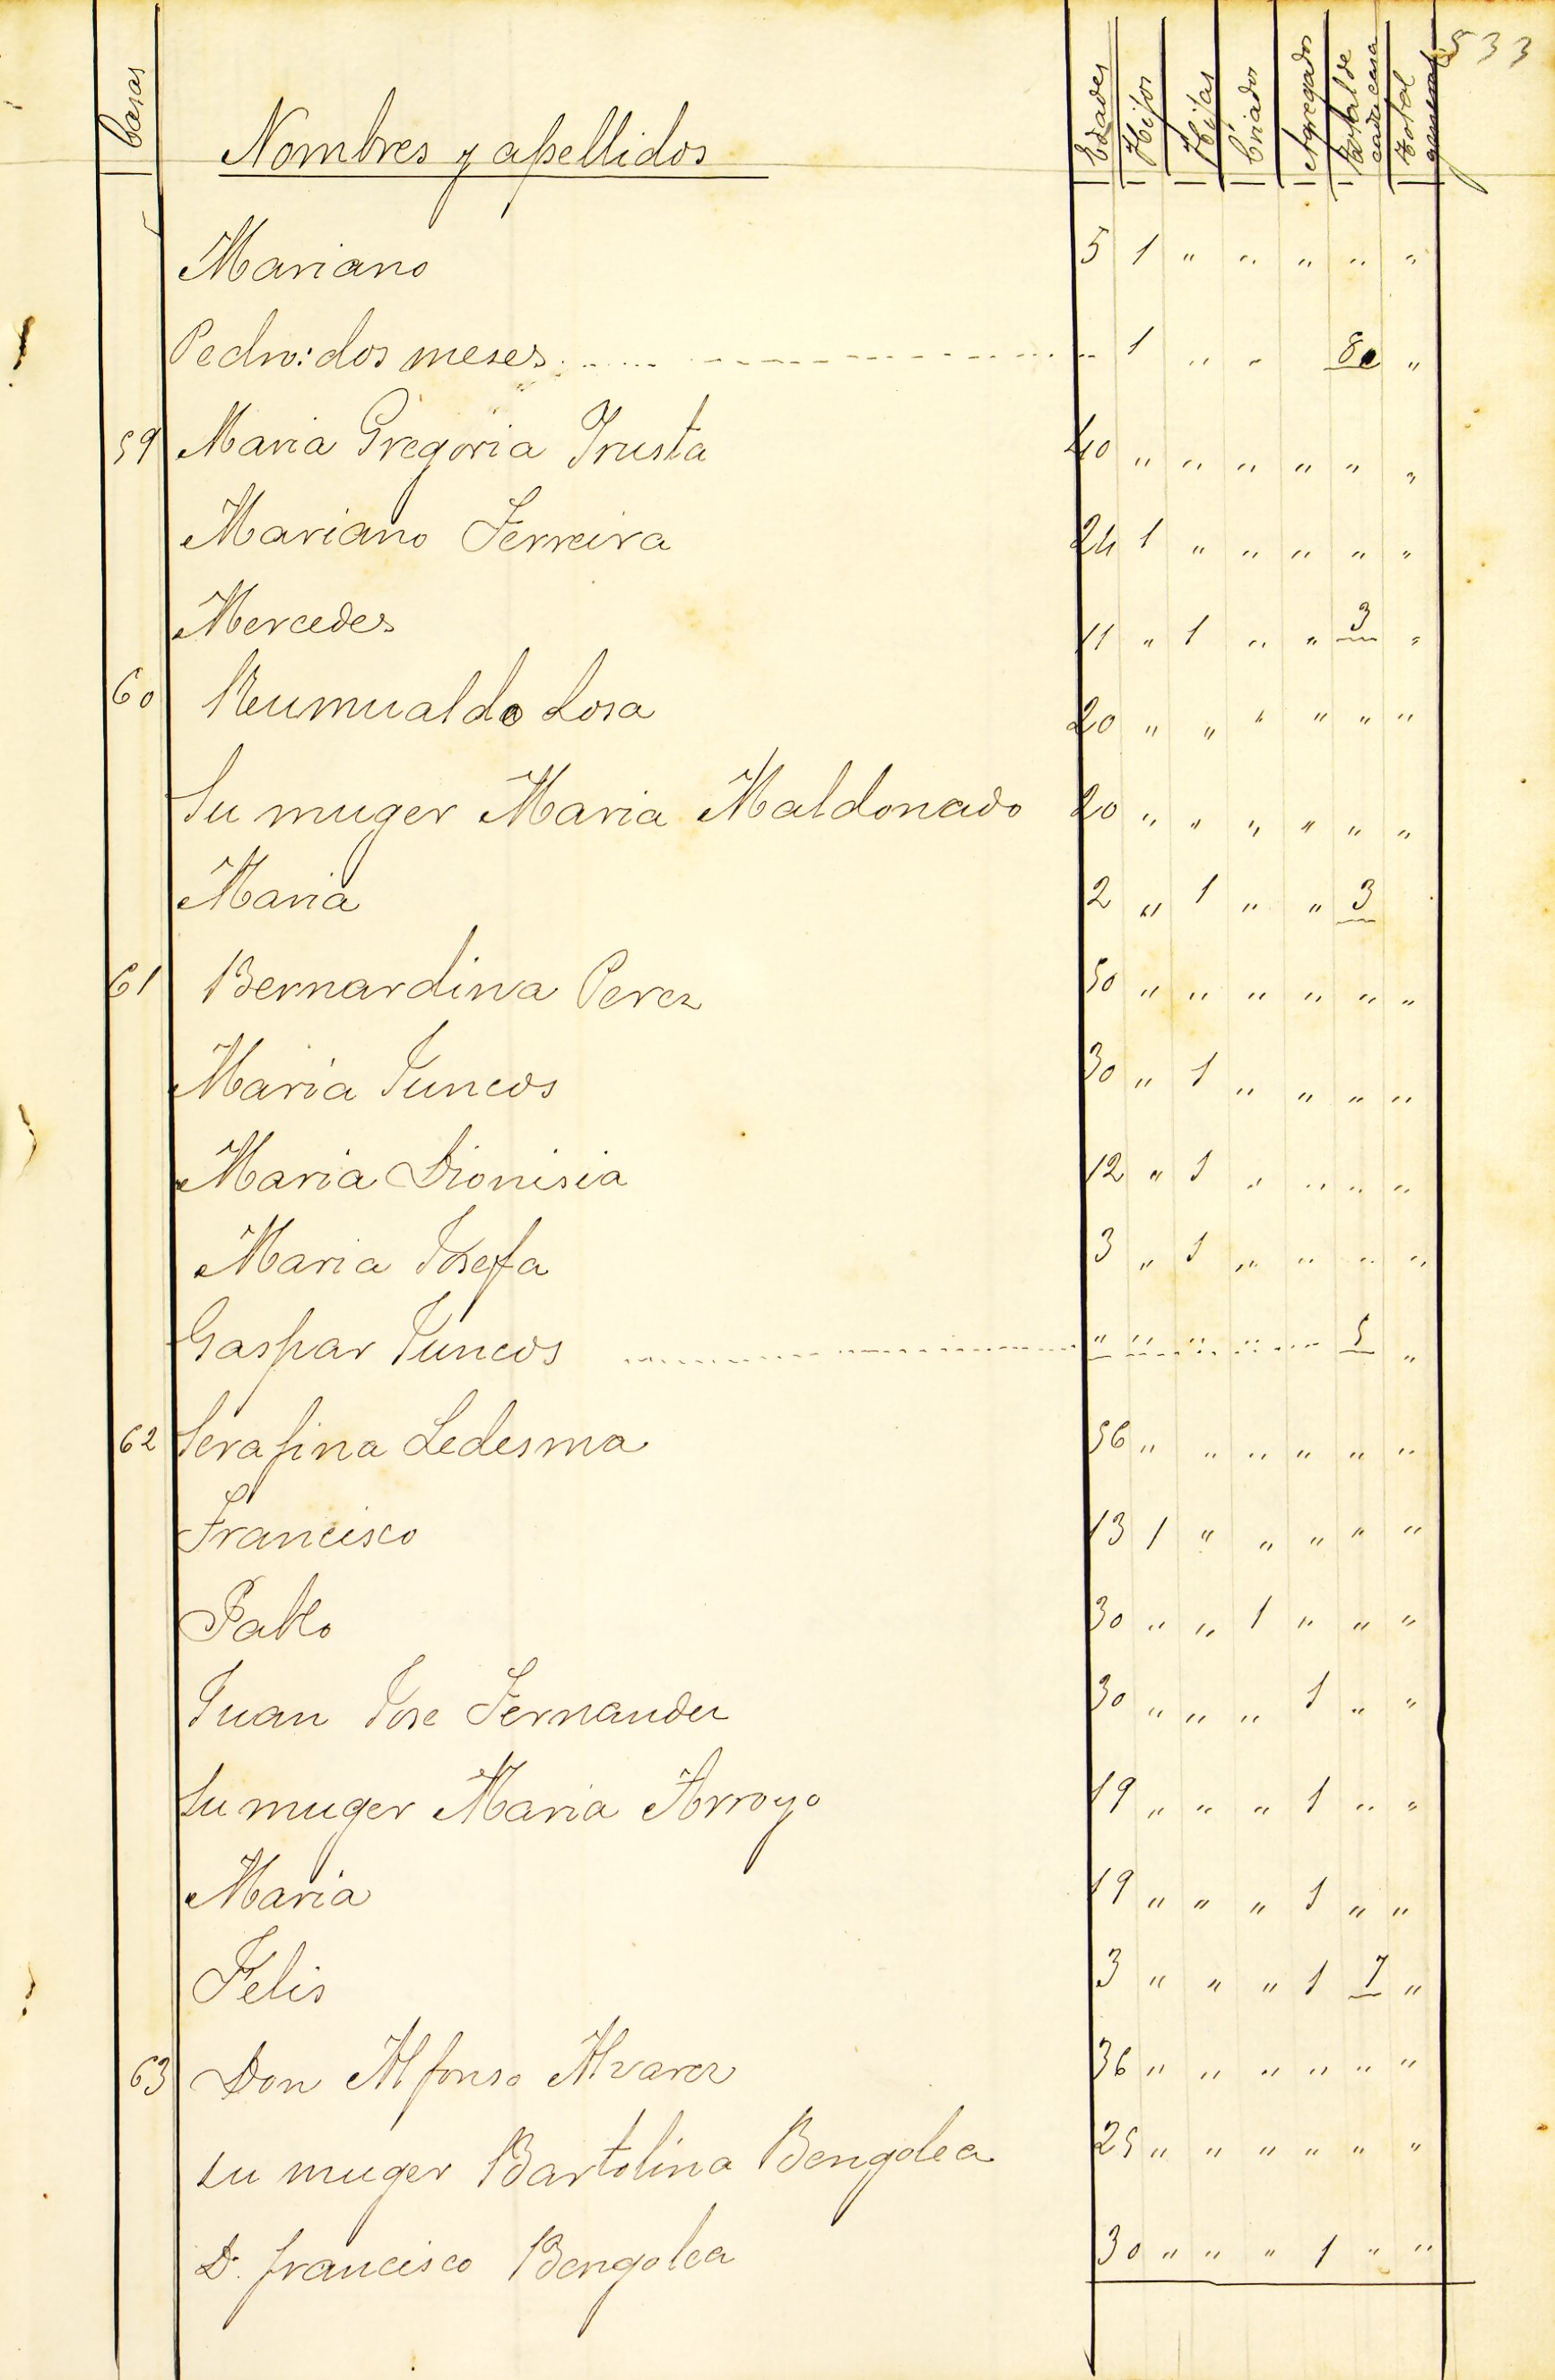 533
Casas Nombres y apellidos Edades Hijos Hijas Criados Agregados Total de cada casa Total general
Mariano 5 1 " " " " "
Pedro: dos meses " 1 " " 8 "
59 Maria Gregoria Irusta 40 " " " " " "
Mariano Ferreira 24 1 " " " " "
Mercedes 11 " 1 " " 3 "
60 Rumualdo Losa 20 " " " " " "
Su muger Maria Maldonado 20 " " " " " "
Maria 2 " 1 " " 3
61 Bernardina Perez 50 " " " " " "
Maria Juncos 30 " 1 " " " "
Maria Dionisia 12 " 1 " " " "
Maria Josefa 3 " 1 " " " "
Gaspar Juncos " " " " " 5 "
62 Serafina Ledesma 56 " " " " " "
Francisco 13 1 " " " " "
Pablo 30 " " 1 " " "
Juan Jose Fernandez 30 " " " 1 " "
Su muger Maria Arroyo 19 " " " 1 " "
Maria 19 " " " 1 " "
Felis 3 " " " 1 7 "
63 Don Alfonso Alvarez 36 " " " " " "
su muger Bartolina Bengolea 25 " " " " " "
D. francisco Bengolea 30 " " " 1 " "